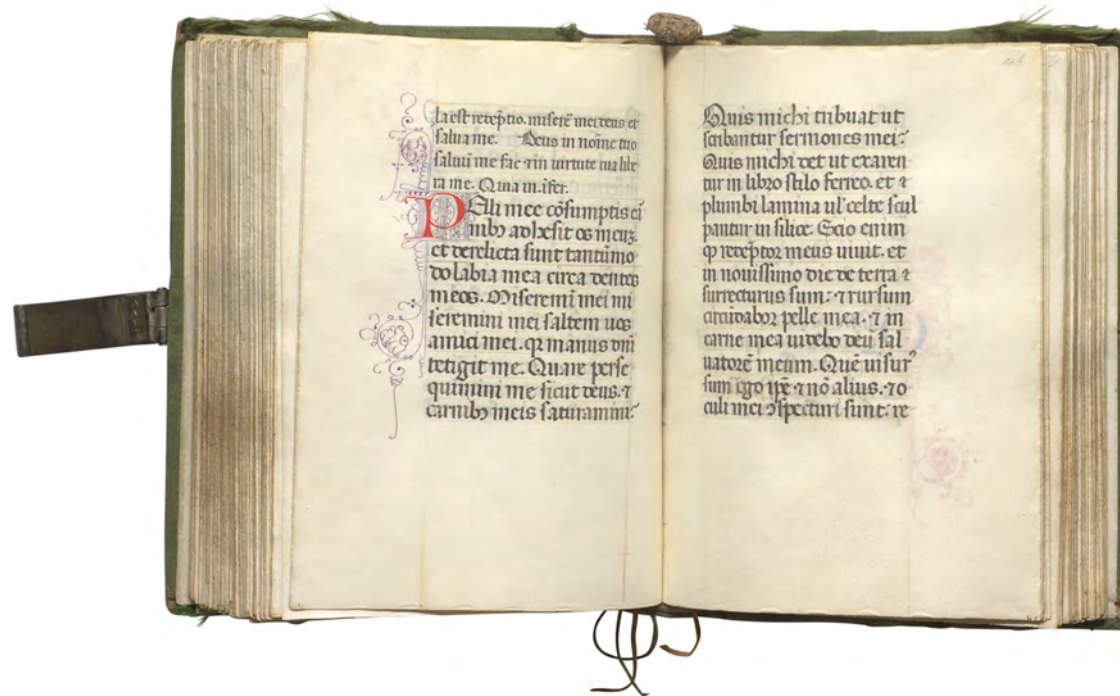 la est redēptio. miserē mei deus et
salua me. Deus in noīe tuo
saluū me fac ⁊ in virtute tua libe
ra me. Quia in īfer.
PElli mee cōsumptis car
nibꝫ adhesit os meuꝫ.
et derelicta sunt tantūmo
do labia mea circa dentes
meos. Miseremī mei mi
seremini mei saltem uos
amici mei. qꝛ manus dn̄i
tetigit me. Quare perse
quimini me sicut deus. ⁊
carnibꝫ meis saturamini?
Quis michi tribuat ut
scribantur sermones mei?
Quis michi det ut exaren
tur in libro stilo ferreo. et ⁊
plumbi lamina ul' celte scul
pantur in silice. Scio enim
ꝙ redēptor meus uiuit. et
in nouissimo die de terra ⁊
surrecturus sum: ⁊ rursum
circūdabor pelle mea. ⁊ in
carne mea uidebo deū sal
uatorē meum. Quē uisurꝰ
sum ego ip̄e ⁊ nō alius. ⁊ o
culi mei ↄspecturi sunt: re